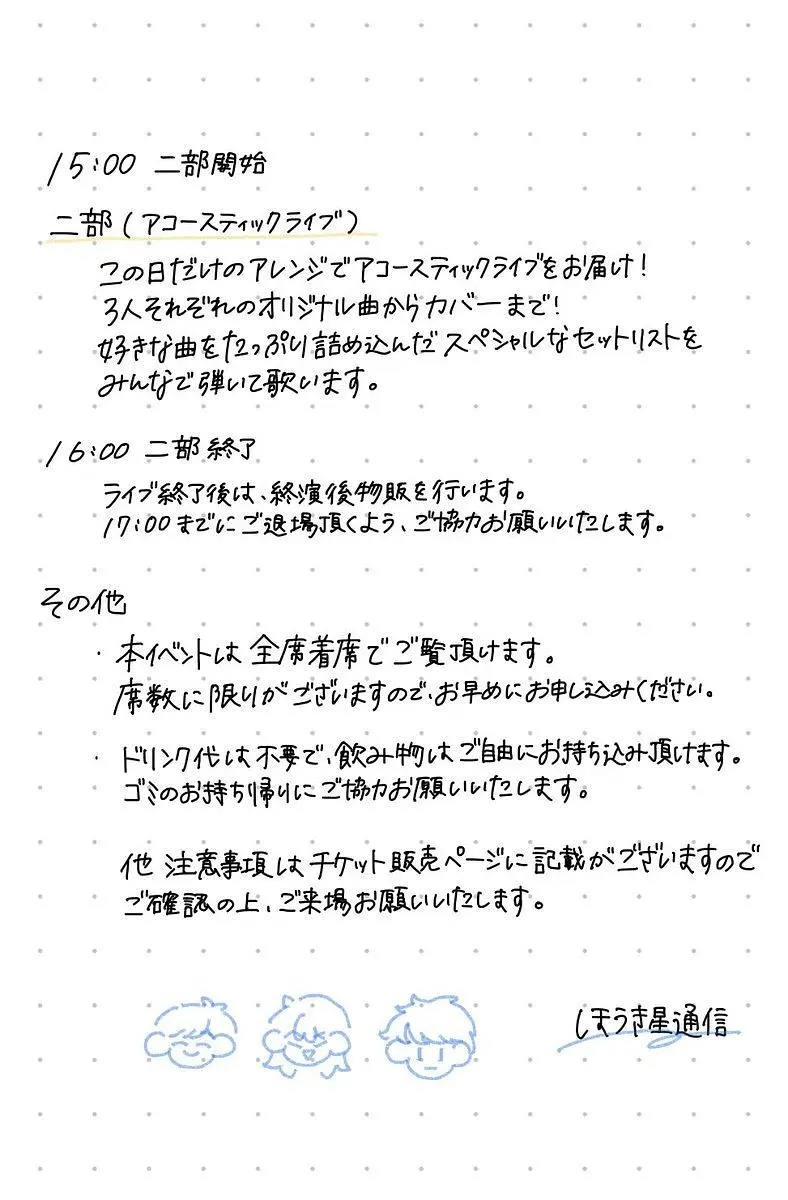 15:00 二部開始
二部(アコースティックライブ)
この日だけのアレンジでアコースティックライブをお届け!
3人それぞれのオリジナル曲からカバーまで!
好きな曲をたっぷり詰め込んだスペシャルなセットリストを
みんなで弾いて歌います。
16:00 二部終了
ライブ終了後は、終演後物販を行います。
17:00までにご退場頂くよう、ご協力お願いいたします。
その他
・本イベントは全席着席でご覧頂けます。
席数に限りがございますので、お早めにお申し込みください。
・ドリンク代は不要で、飲み物はご自由にお持ち込み頂けます。
ゴミのお持ち帰りにご協力お願いいたします。
他 注意事項はチケット販売ページに記載がございますので
ご確認の上、ご来場お願いいたします。
しほうき星通信